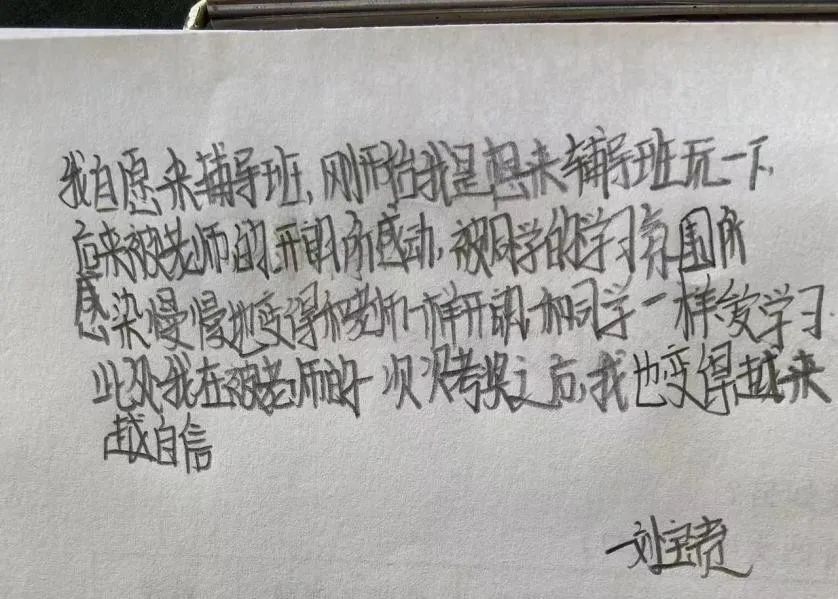 我自愿来辅导班,刚开始我是想来辅导班玩一下,
后来被老师的开朗所感动,被同学的学习氛围所
感染慢慢地变得和老师一样开朗,和同学一样爱学习
此外我在被老师的一次次夸奖之后,我也变得越来
越自信
刘宝贵